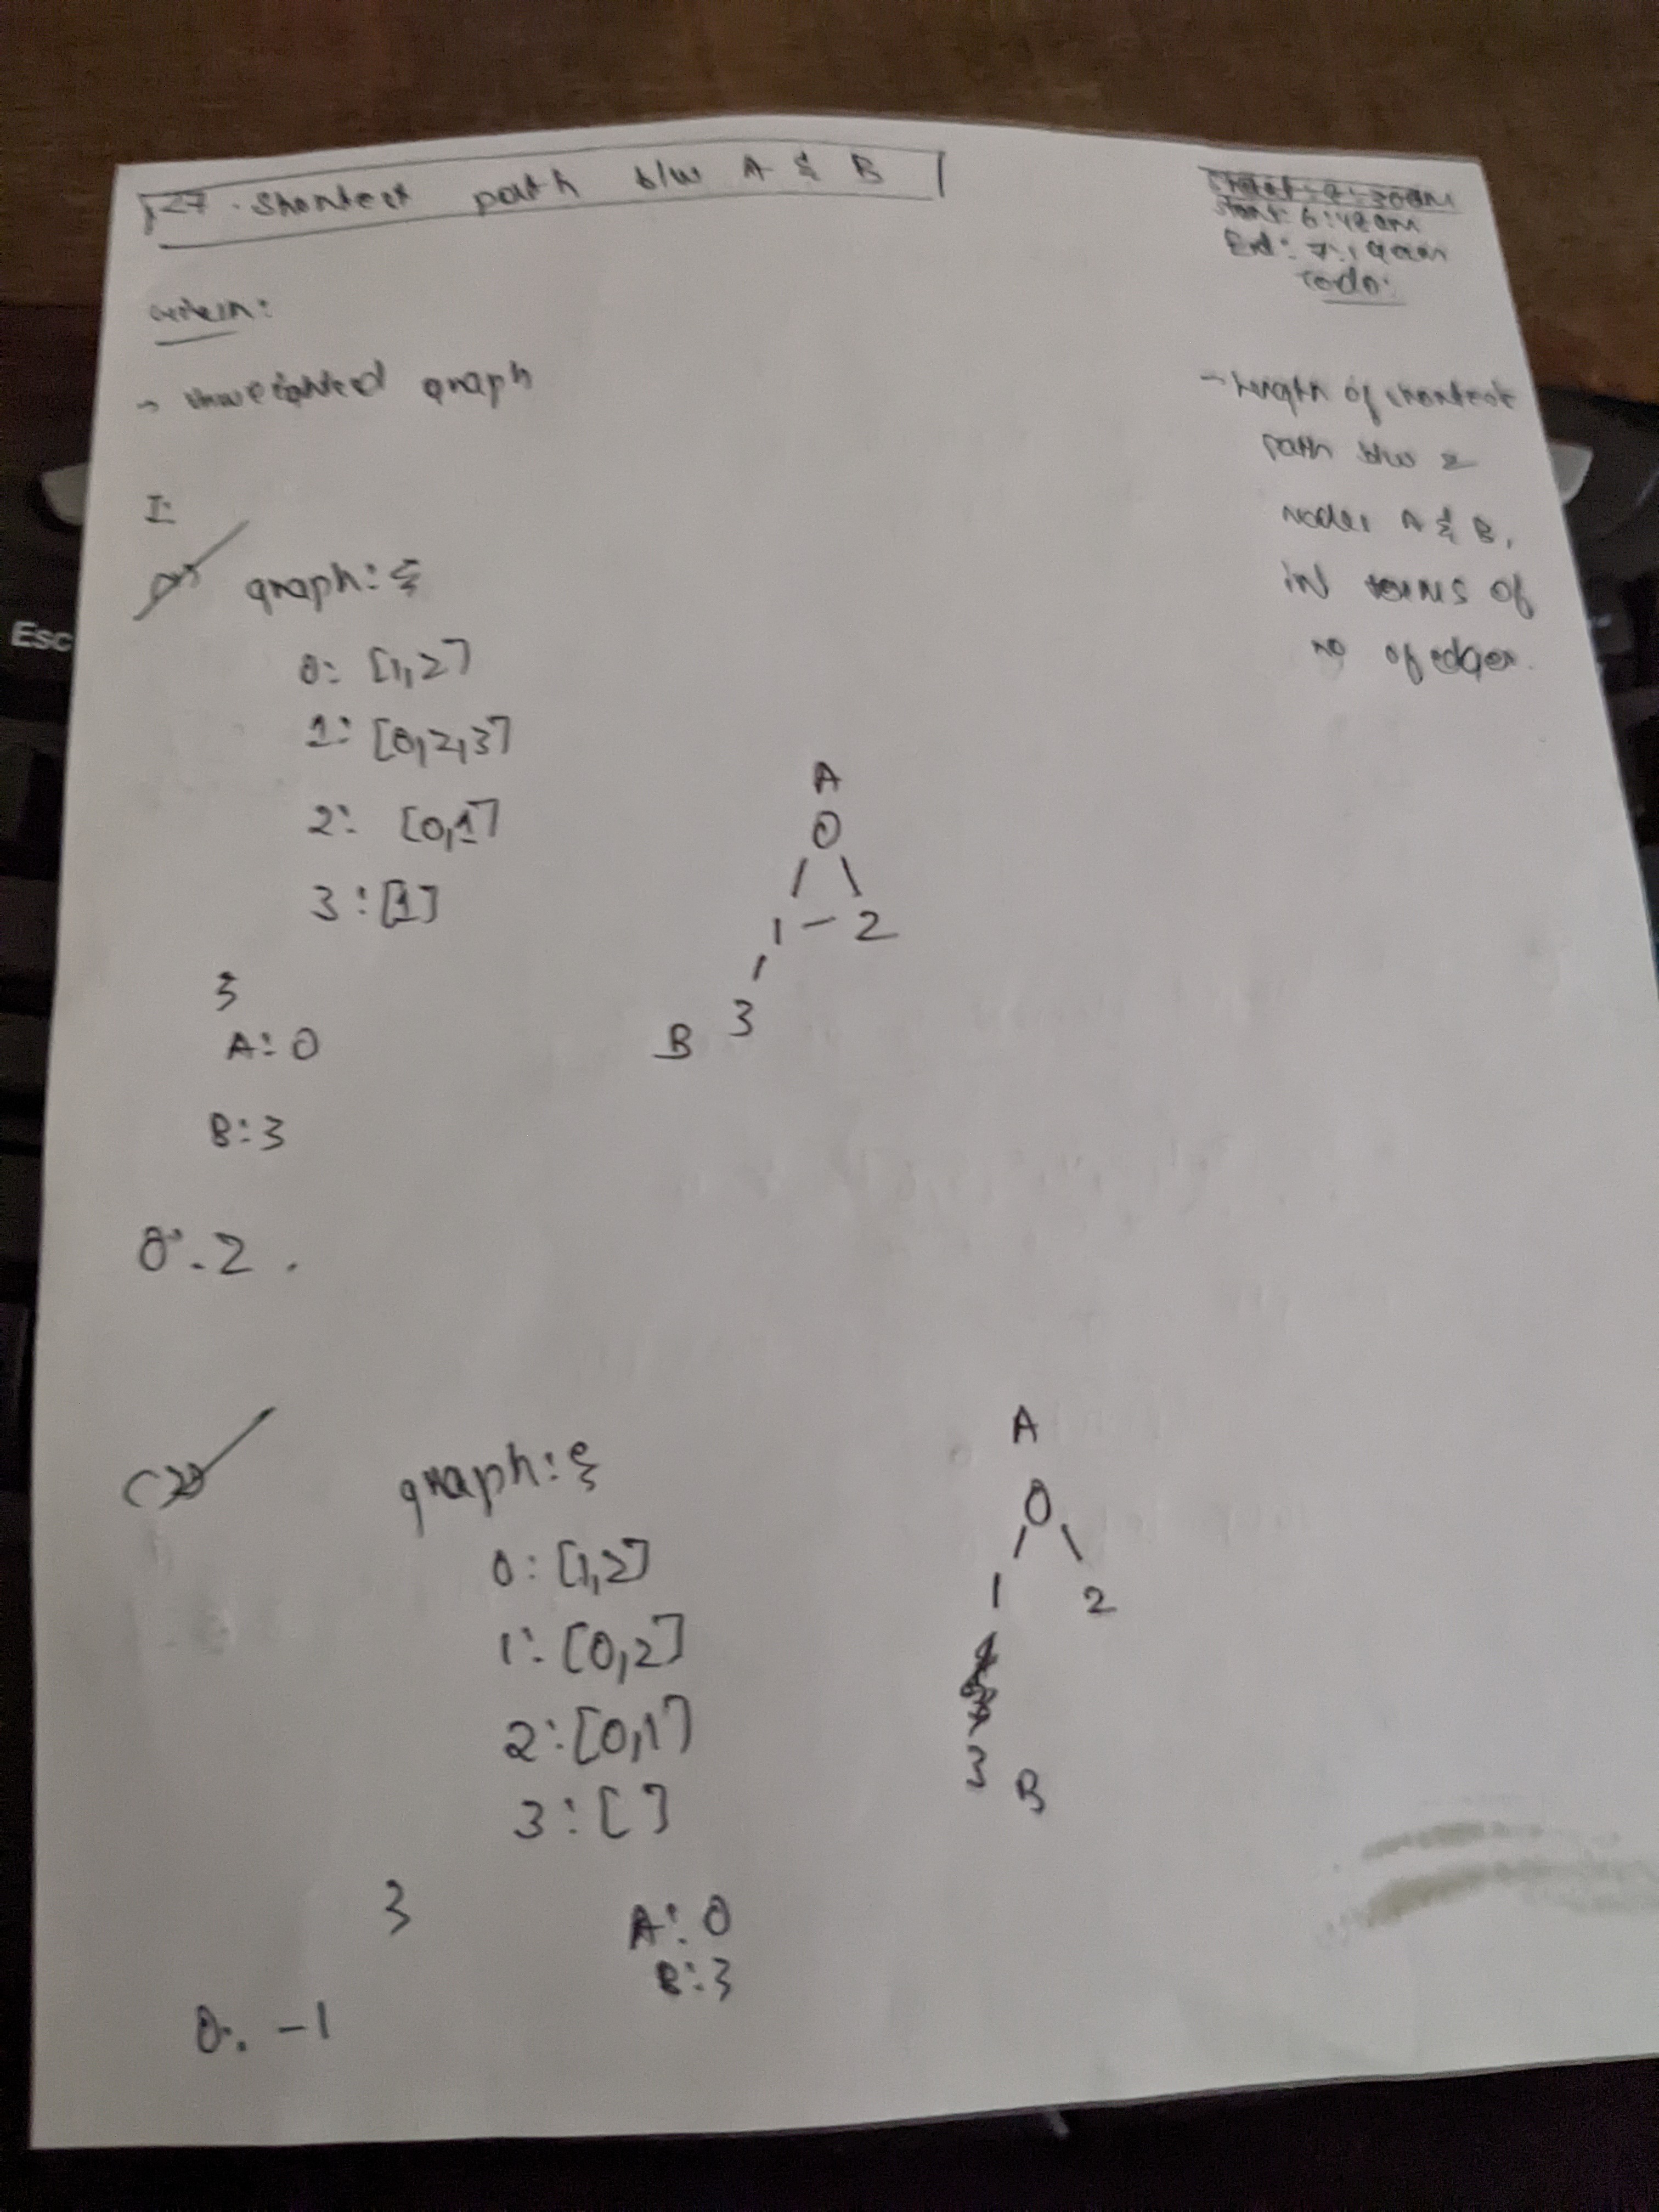 127. Shortest path b/w A & B
Start: 6:48am
End: 7:19am
Todo:
Given:
→ unweighted graph
→ length of shortest
path b/w 2
nodes A & B,
in terms of
no of edges.
I:
graph: {
0: [1,2]
1: [0,2,3]
2: [0,1]
3: [1]
}
A: 0
B: 3
A
0
1 - 2
3
B
O: 2.
(2)
graph: {
0: [1,2]
1: [0,2]
2: [0,1]
3: [ ]
}
A: 0
B: 3
A
0
1 2
3 B
O: -1
Esc